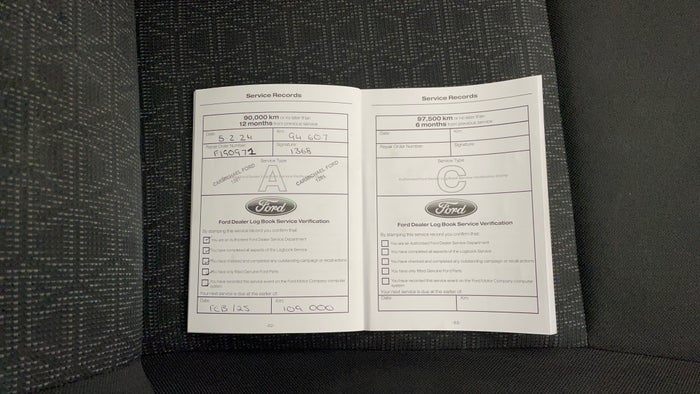 Service Records
90,000 km or no later than
12 months from previous service
Date Km
5.2.24 94 607
Repair Order Number Signature
F150971 1368
Service Type
A
CARMICHAEL FORD
CARMICHAEL FORD
Ford
Ford Dealer Log Book Service Verification
By stamping this service record you confirm that:
You are an Authorised Ford Dealer Service Department
You have completed all aspects of the Logbook Service
You have checked and completed any outstanding campaign or recall actions
You have only fitted Genuine Ford Parts
You have recorded this service event on the Ford Motor Company computer
system
Your next service is due at the earlier of:
Date Km
FEB 125 109 000
Service Records
97,500 km or no later than
6 months from previous service
Date Km
Repair Order Number Signature
Service Type
C
Ford
Ford Dealer Log Book Service Verification
By stamping this service record you confirm that:
You are an Authorised Ford Dealer Service Department
You have completed all aspects of the Logbook Service
You have checked and completed any outstanding campaign or recall actions
You have only fitted Genuine Ford Parts
You have recorded this service event on the Ford Motor Company computer
system
Your next service is due at the earlier of:
Date Km